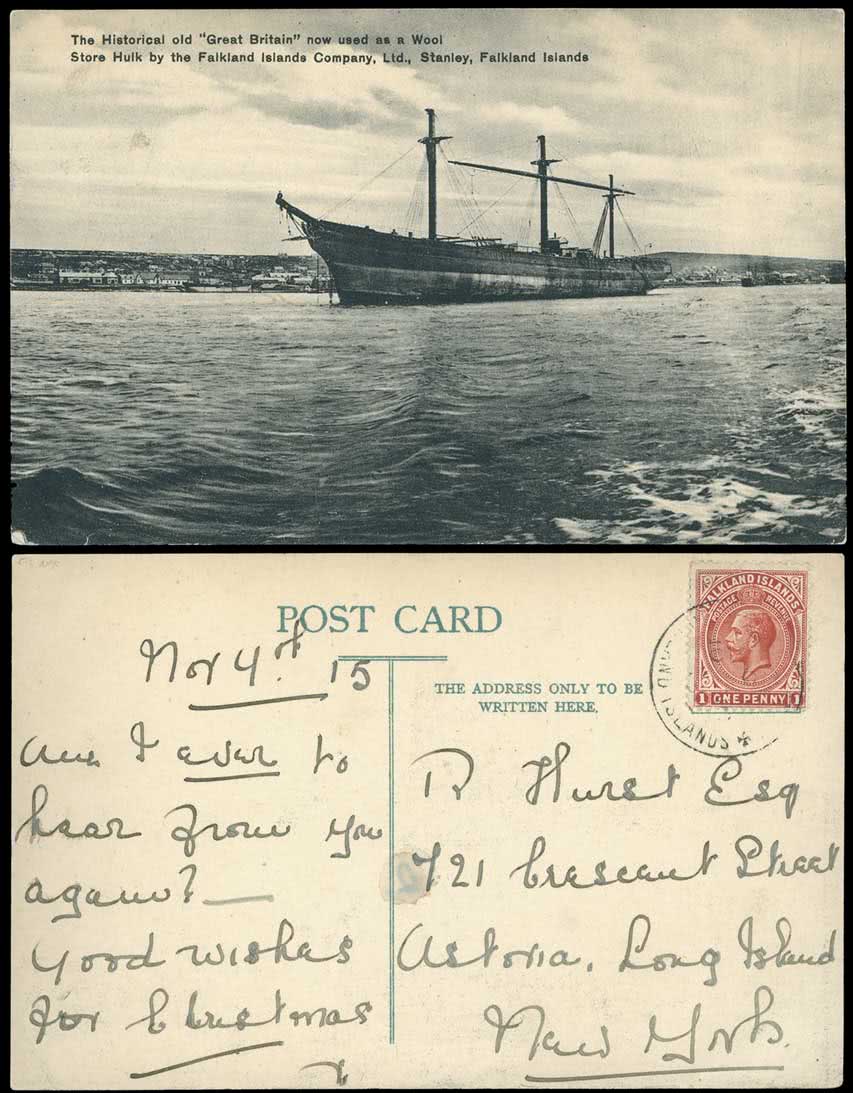 The Historical old "Great Britain" now used as a Wool
Store Hulk by the Falkland Islands Company, Ltd., Stanley, Falkland Islands
POST CARD
THE ADDRESS ONLY TO BE
WRITTEN HERE.
FALKLAND ISLANDS
POSTAGE REVENUE
1 ONE PENNY 1
ISLANDS
Nov 4th 15
Am I ever to
hear from you
again?
Good wishes
for Christmas
R Hurst Esq
721 Crescent Street
Astoria, Long Island
New York.